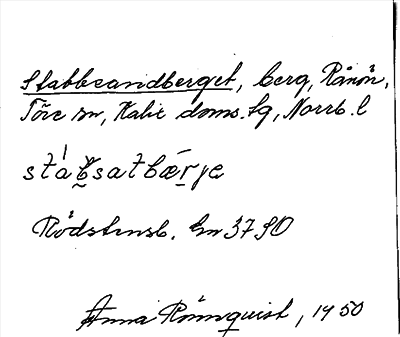 Stabbsandberget, berg, Rånön,
Töre sn, Kalix doms.tg, Norrb. l
Rödstensb. Gn 3790
Anna Rönnquist, 1950